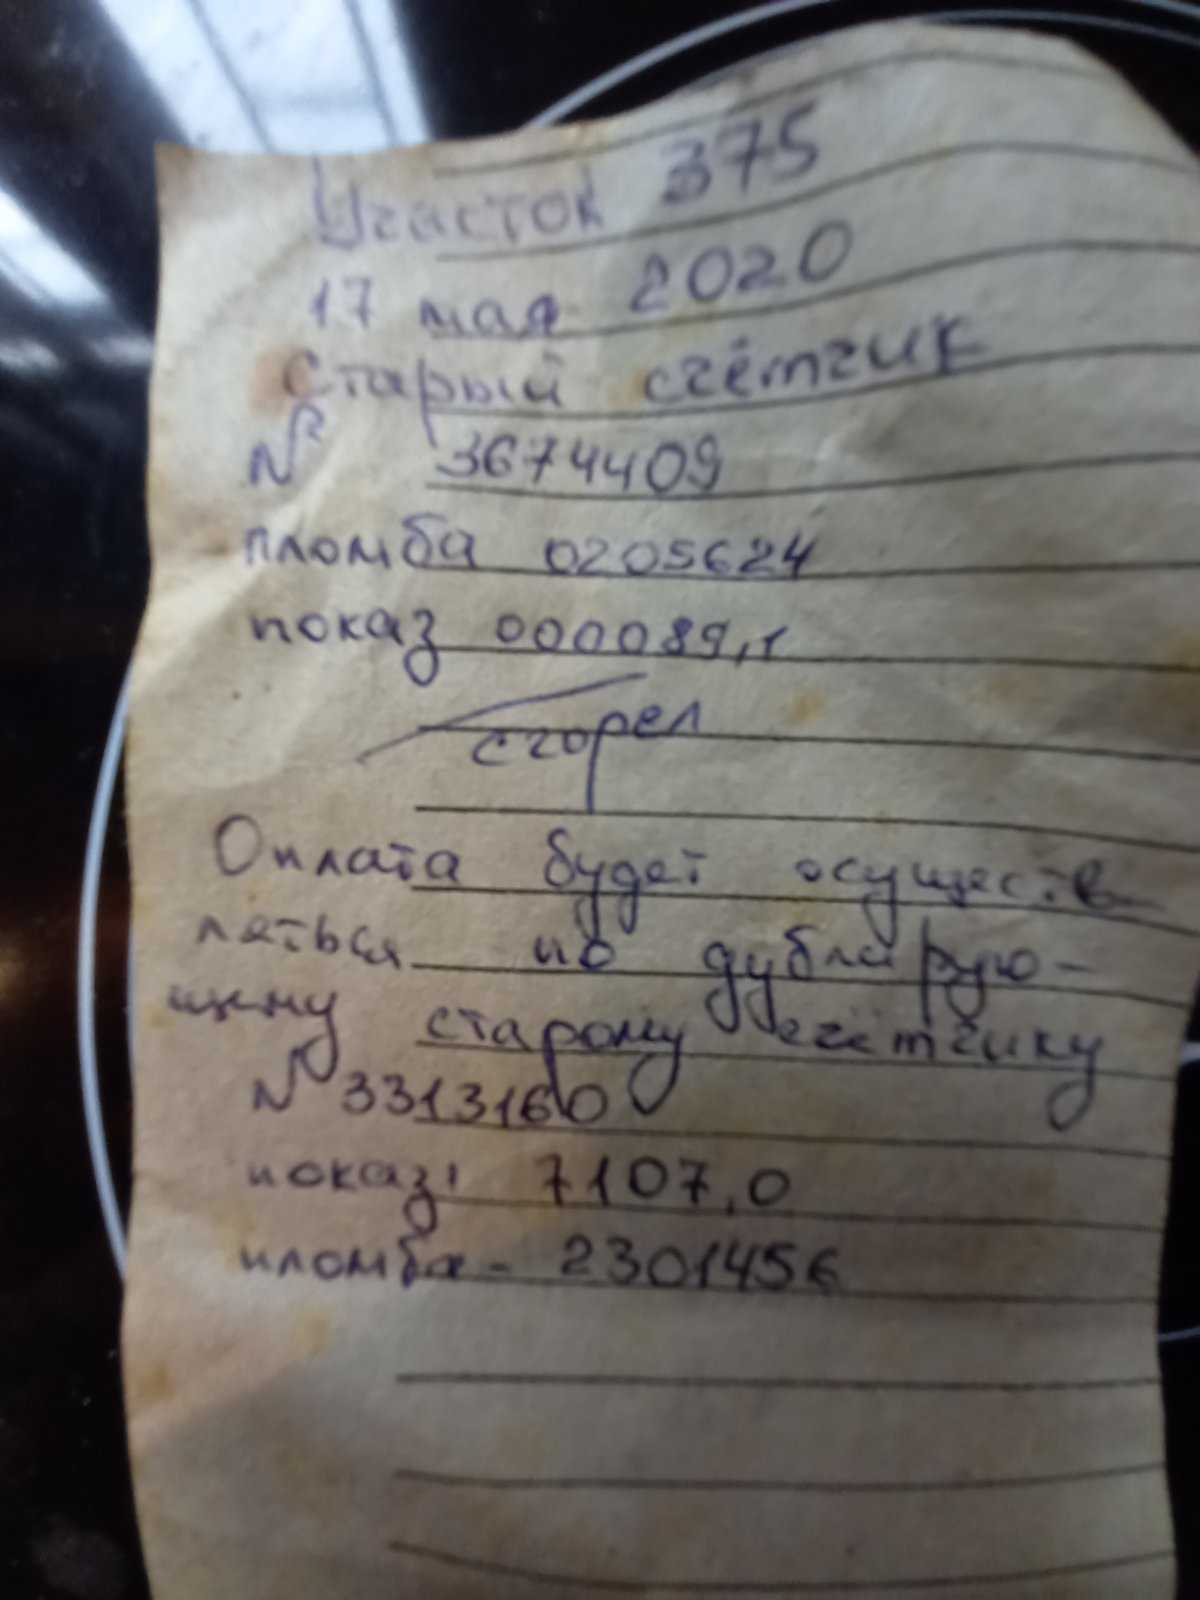 Участок 375
17 мая 2020
Старый счётчик
№ 3674409
пломба 0205624
показ 000089,1
сгорел
Оплата будет осуществ-
ляться по дублирую-
щему старому счётчику
№ 3313160
показ: 7107,0
пломба - 2301456